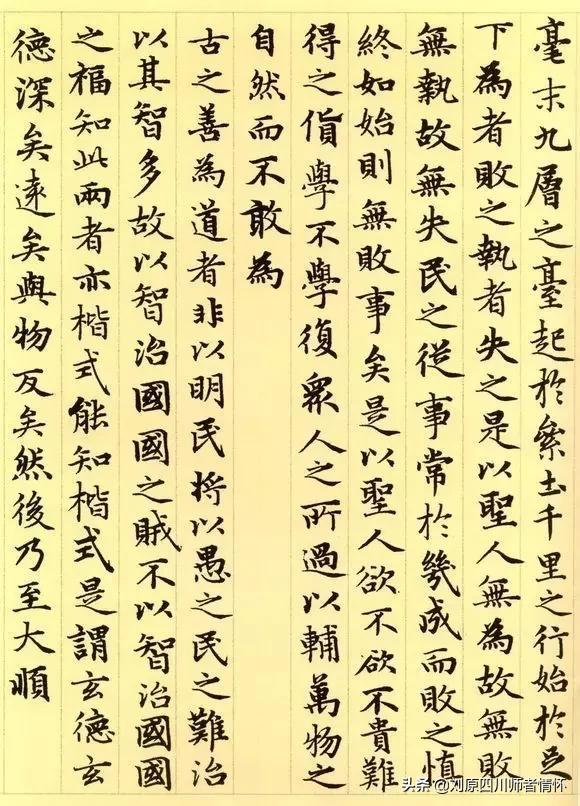 毫末九層之臺起於累土千里之行始於足
下為者敗之執者失之是以聖人無為故無敗
無執故無失民之從事常於幾成而敗之慎
終如始則無敗事矣是以聖人欲不欲不貴難
得之貨學不學復眾人之所過以輔萬物之
自然而不敢為
古之善為道者非以明民將以愚之民之難治
以其智多故以智治國國之賊不以智治國國
之福知此兩者亦楷式能知楷式是謂玄德玄
德深矣遠矣與物反矣然後乃至大順
头条 @刘原四川师者情怀